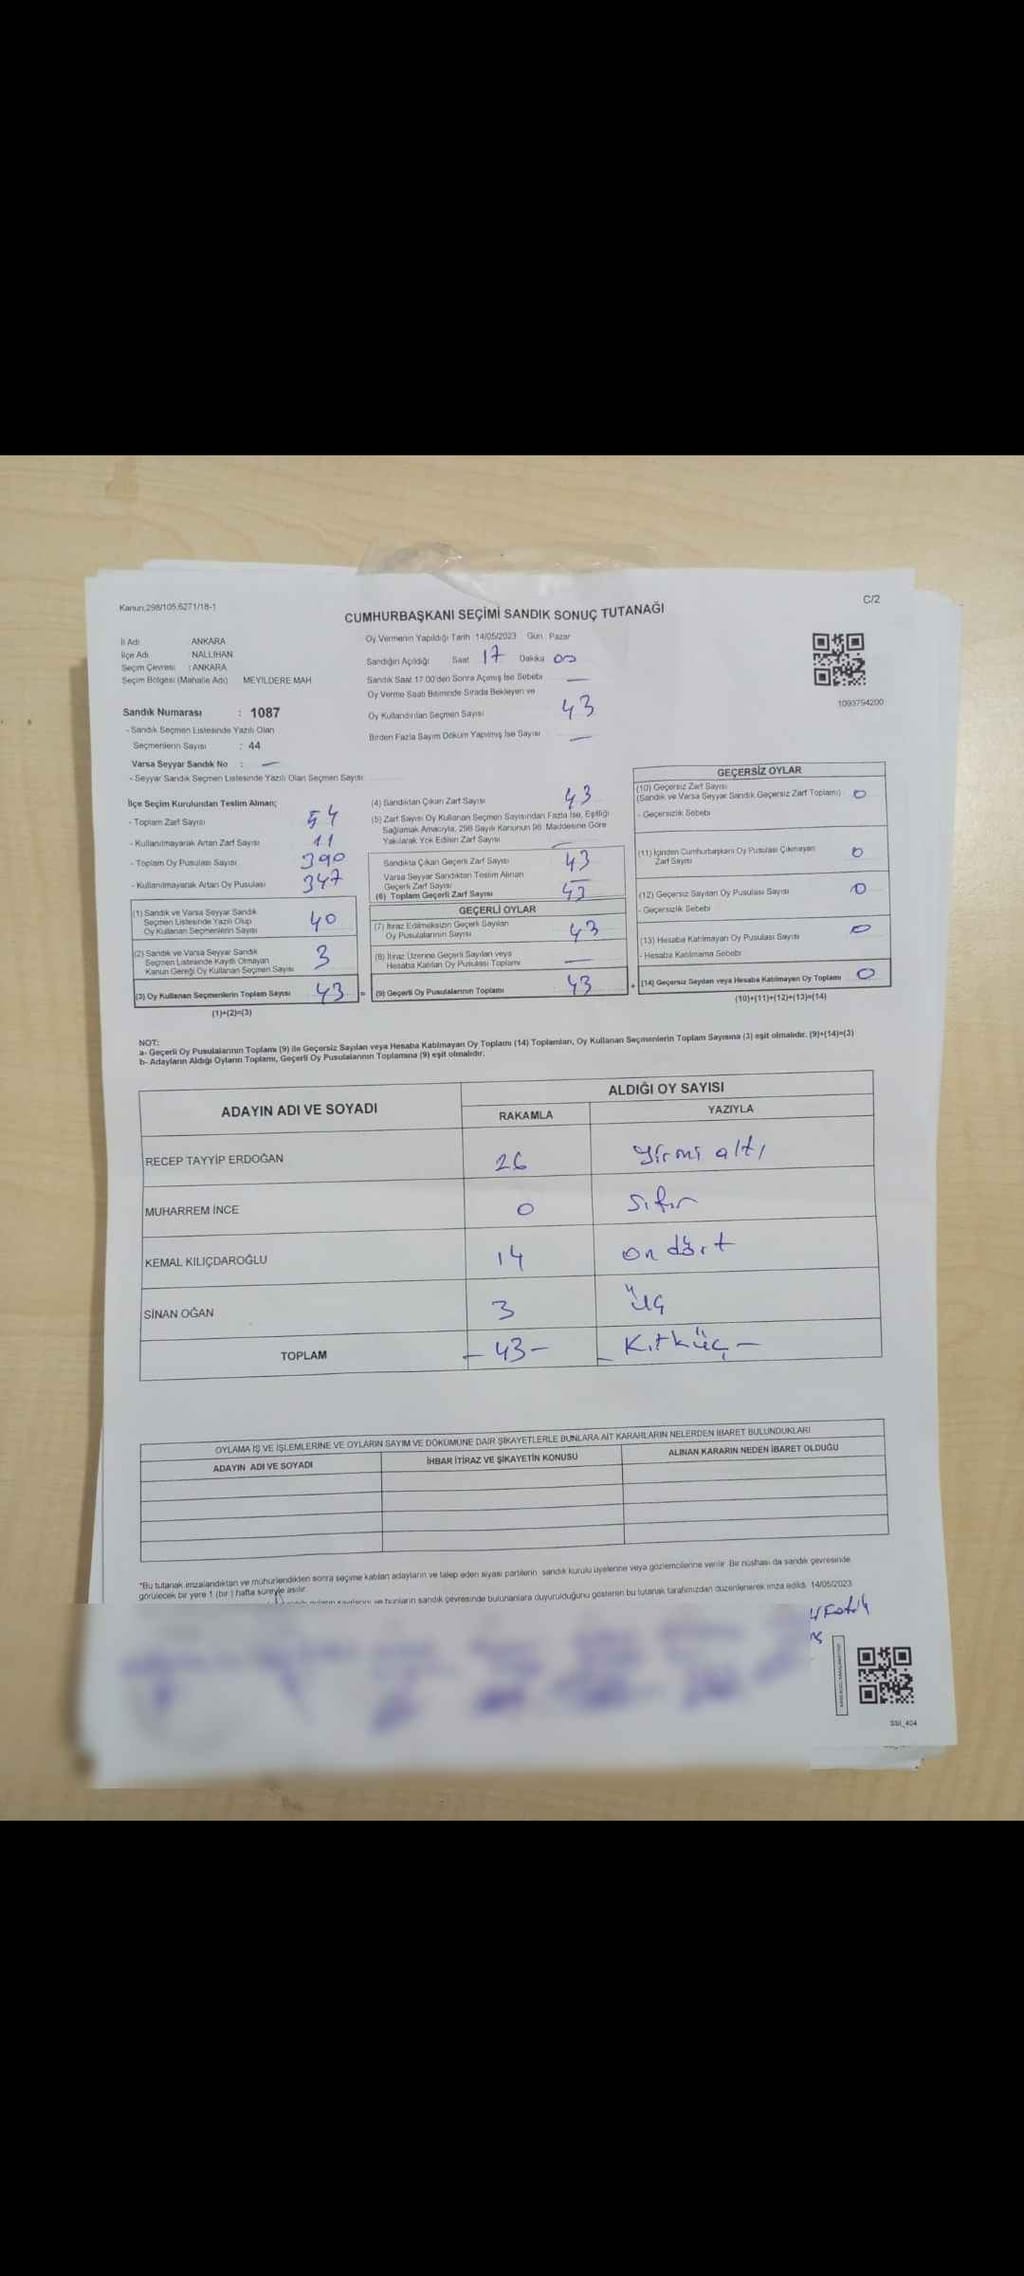 Kanun;298/105,6271/18-1
C/2
CUMHURBAŞKANI SEÇİMİ SANDIK SONUÇ TUTANAĞI
İl Adı ANKARA
İlçe Adı NALLIHAN
Seçim Çevresi : ANKARA
Seçim Bölgesi (Mahalle Adı) MEYİLDERE MAH
Sandık Numarası : 1087
- Sandık Seçmen Listesinde Yazılı Olan
Seçmenlerin Sayısı : 44
Varsa Seyyar Sandık No : —
- Seyyar Sandık Seçmen Listesinde Yazılı Olan Seçmen Sayısı
Oy Vermenin Yapıldığı Tarih 14/05/2023 Gün Pazar
Sandığın Açıldığı Saat 17 Dakika 00
Sandık Saat 17.00'den Sonra Açılmış İse Sebebi —
Oy Verme Saati Bitiminde Sırada Bekleyen ve
Oy Kullandırılan Seçmen Sayısı 43
Birden Fazla Sayım Döküm Yapılmış İse Sayısı —
1093794200
İlçe Seçim Kurulundan Teslim Alınan;
- Toplam Zarf Sayısı 54
- Kullanılmayarak Artan Zarf Sayısı 11
- Toplam Oy Pusulası Sayısı 390
- Kullanılmayarak Artan Oy Pusulası 347
(1) Sandık ve Varsa Seyyar Sandık
Seçmen Listesinde Yazılı Olup
Oy Kullanan Seçmenlerin Sayısı 40
(2) Sandık ve Varsa Seyyar Sandık
Seçmen Listesinde Kayıtlı Olmayan
Kanun Gereği Oy Kullanan Seçmen Sayısı 3
(3) Oy Kullanan Seçmenlerin Toplam Sayısı 43 =
(1)+(2)=(3)
(4) Sandıktan Çıkan Zarf Sayısı 43
(5) Zarf Sayısı Oy Kullanan Seçmen Sayısından Fazla İse, Eşitliği
Sağlamak Amacıyla, 298 Sayılı Kanunun 98. Maddesine Göre
Yakılarak Yok Edilen Zarf Sayısı —
Sandıkta Çıkan Geçerli Zarf Sayısı 43
Varsa Seyyar Sandıktan Teslim Alınan
Geçerli Zarf Sayısı —
(6) Toplam Geçerli Zarf Sayısı 43
GEÇERLİ OYLAR
(7) İtiraz Edilmeksizin Geçerli Sayılan
Oy Pusulalarının Sayısı 43
(8) İtiraz Üzerine Geçerli Sayılan veya
Hesaba Katılan Oy Pusulası Toplamı —
(9) Geçerli Oy Pusulalarının Toplamı 43 +
GEÇERSİZ OYLAR
(10) Geçersiz Zarf Sayısı
(Sandık ve Varsa Seyyar Sandık Geçersiz Zarf Toplamı) 0
- Geçersizlik Sebebi
(11) İçinden Cumhurbaşkanı Oy Pusulası Çıkmayan
Zarf Sayısı 0
(12) Geçersiz Sayılan Oy Pusulası Sayısı 0
- Geçersizlik Sebebi
(13) Hesaba Katılmayan Oy Pusulası Sayısı 0
- Hesaba Katılmama Sebebi
(14) Geçersiz Sayılan veya Hesaba Katılmayan Oy Toplamı 0
(10)+(11)+(12)+(13)=(14)
NOT:
a- Geçerli Oy Pusulalarının Toplamı (9) ile Geçersiz Sayılan veya Hesaba Katılmayan Oy Toplamı (14) Toplamları, Oy Kullanan Seçmenlerin Toplam Sayısına (3) eşit olmalıdır. (9)+(14)=(3)
b- Adayların Aldığı Oyların Toplamı, Geçerli Oy Pusulalarının Toplamına (9) eşit olmalıdır.
ADAYIN ADI VE SOYADI ALDIĞI OY SAYISI
RAKAMLA YAZIYLA
RECEP TAYYİP ERDOĞAN 26 Yirmi altı
MUHARREM İNCE 0 sıfır
KEMAL KILIÇDAROĞLU 14 on dört
SİNAN OĞAN 3 üç
TOPLAM - 43 - - Kırküç -
OYLAMA İŞ VE İŞLEMLERİNE VE OYLARIN SAYIM VE DÖKÜMÜNE DAİR ŞİKAYETLERLE BUNLARA AİT KARARLARIN NELERDEN İBARET BULUNDUKLARI
ADAYIN ADI VE SOYADI İHBAR İTİRAZ VE ŞİKAYETİN KONUSU ALINAN KARARIN NEDEN İBARET OLDUĞU
*Bu tutanak imzalandıktan ve mühürlendikten sonra seçime katılan adayların ve talep eden siyasi partilerin sandık kurulu üyelerine veya gözlemcilerine verilir. Bir nüshası da sandık çevresinde
görülecek bir yere 1 (bir) hafta süreyle asılır.
ve bunların sandık çevresinde bulunanlara duyurulduğunu gösteren bu tutanak tarafımızdan düzenlenerek imza edildi. 14/05/2023
Fatih
SSI_404